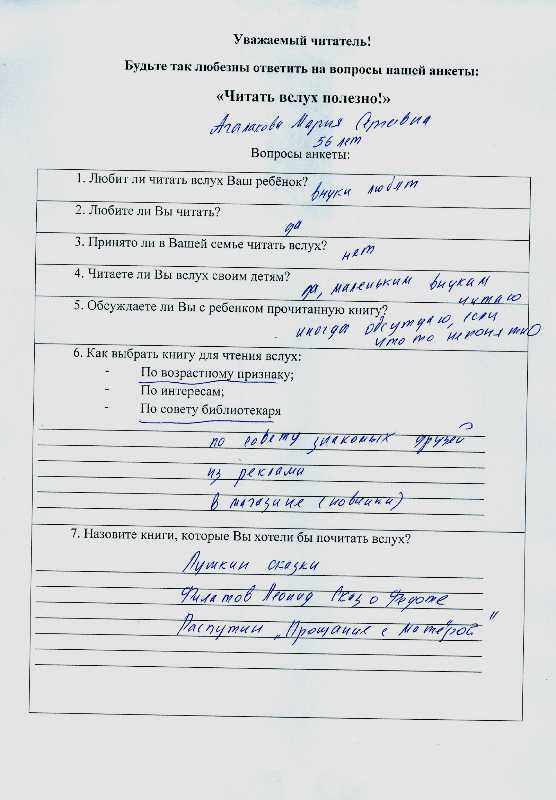 Уважаемый читатель!
Будьте так любезны ответить на вопросы нашей анкеты:
«Читать вслух полезно!»
Агалакова Мария Сергеевна
56 лет
Вопросы анкеты:
1. Любит ли читать вслух Ваш ребёнок?
внуки любят
2. Любите ли Вы читать?
да
3. Принято ли в Вашей семье читать вслух?
нет
4. Читаете ли Вы вслух своим детям?
да, маленьким внукам
читаю
5. Обсуждаете ли Вы с ребенком прочитанную книгу?
иногда обсуждаю, если
что то непонятно
6. Как выбрать книгу для чтения вслух:
- По возрастному признаку;
- По интересам;
- По совету библиотекаря
по совету знакомых друзей
из рекламы
в магазине (новинки)
7. Назовите книги, которые Вы хотели бы почитать вслух?
Пушкин сказки
Филатов Леонид Сказ о Федоте
Распутин „Прощание с Матёрой"